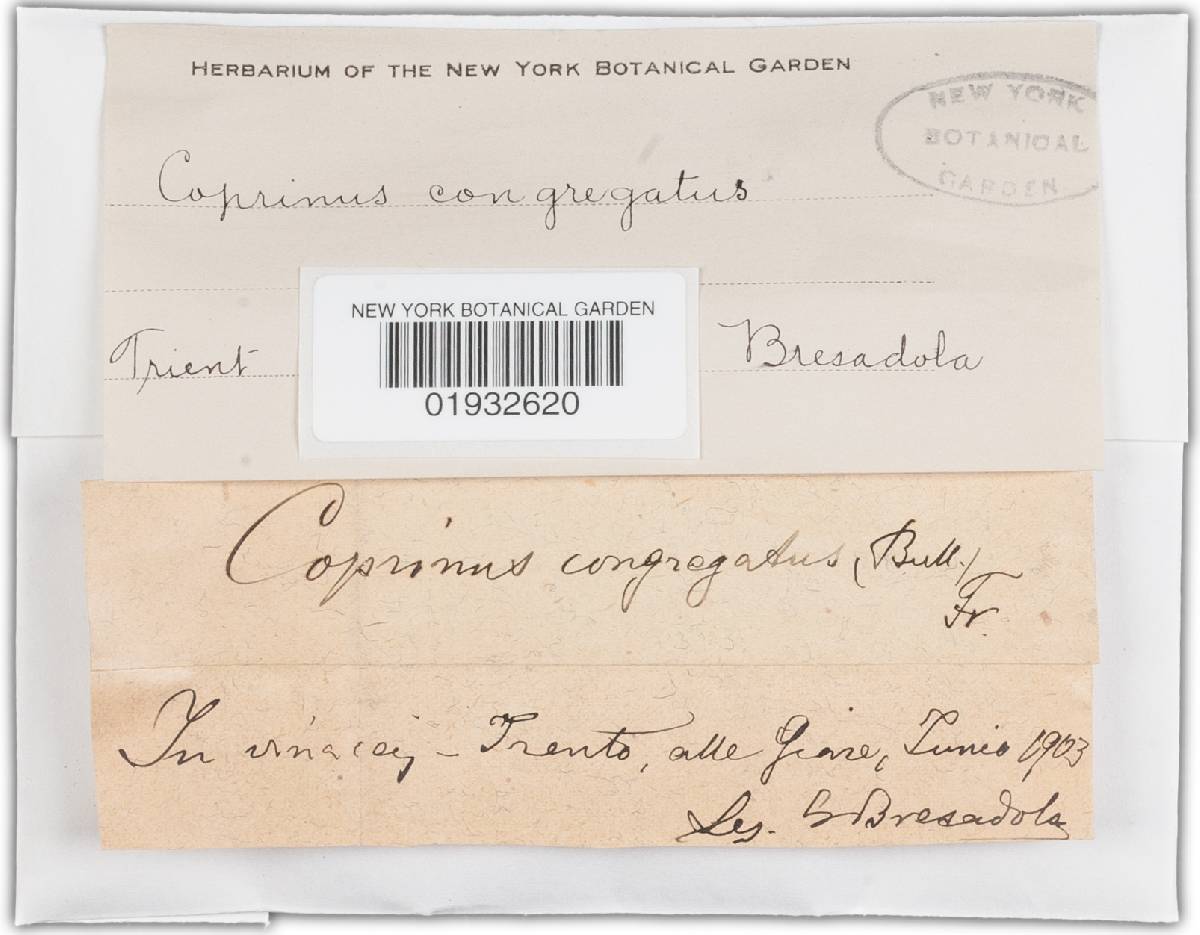 HERBARIUM OF THE NEW YORK BOTANICAL GARDEN
NEW YORK
BOTANICAL
GARDEN
Coprinus congregatus
NEW YORK BOTANICAL GARDEN
01932620
Trient
Bresadola
Coprinus congregatus (Bull.)
Fr.
In vinaceis - Trento, alle Giare, Junio 1903
Leg. G Bresadola